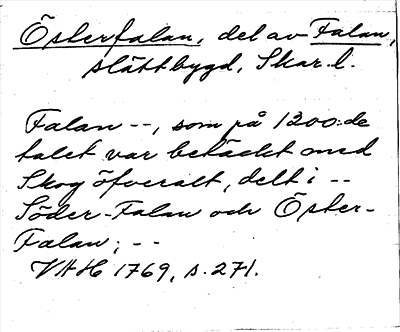 Österfalan, del av Falan,
slättbygd, Skar. l.
Falan --, som på 1200:de
talet var betäckt med
Skog öfveralt, delt i --
Söder-Falan och Öster-
Falan; --
VAH 1769, s. 271.